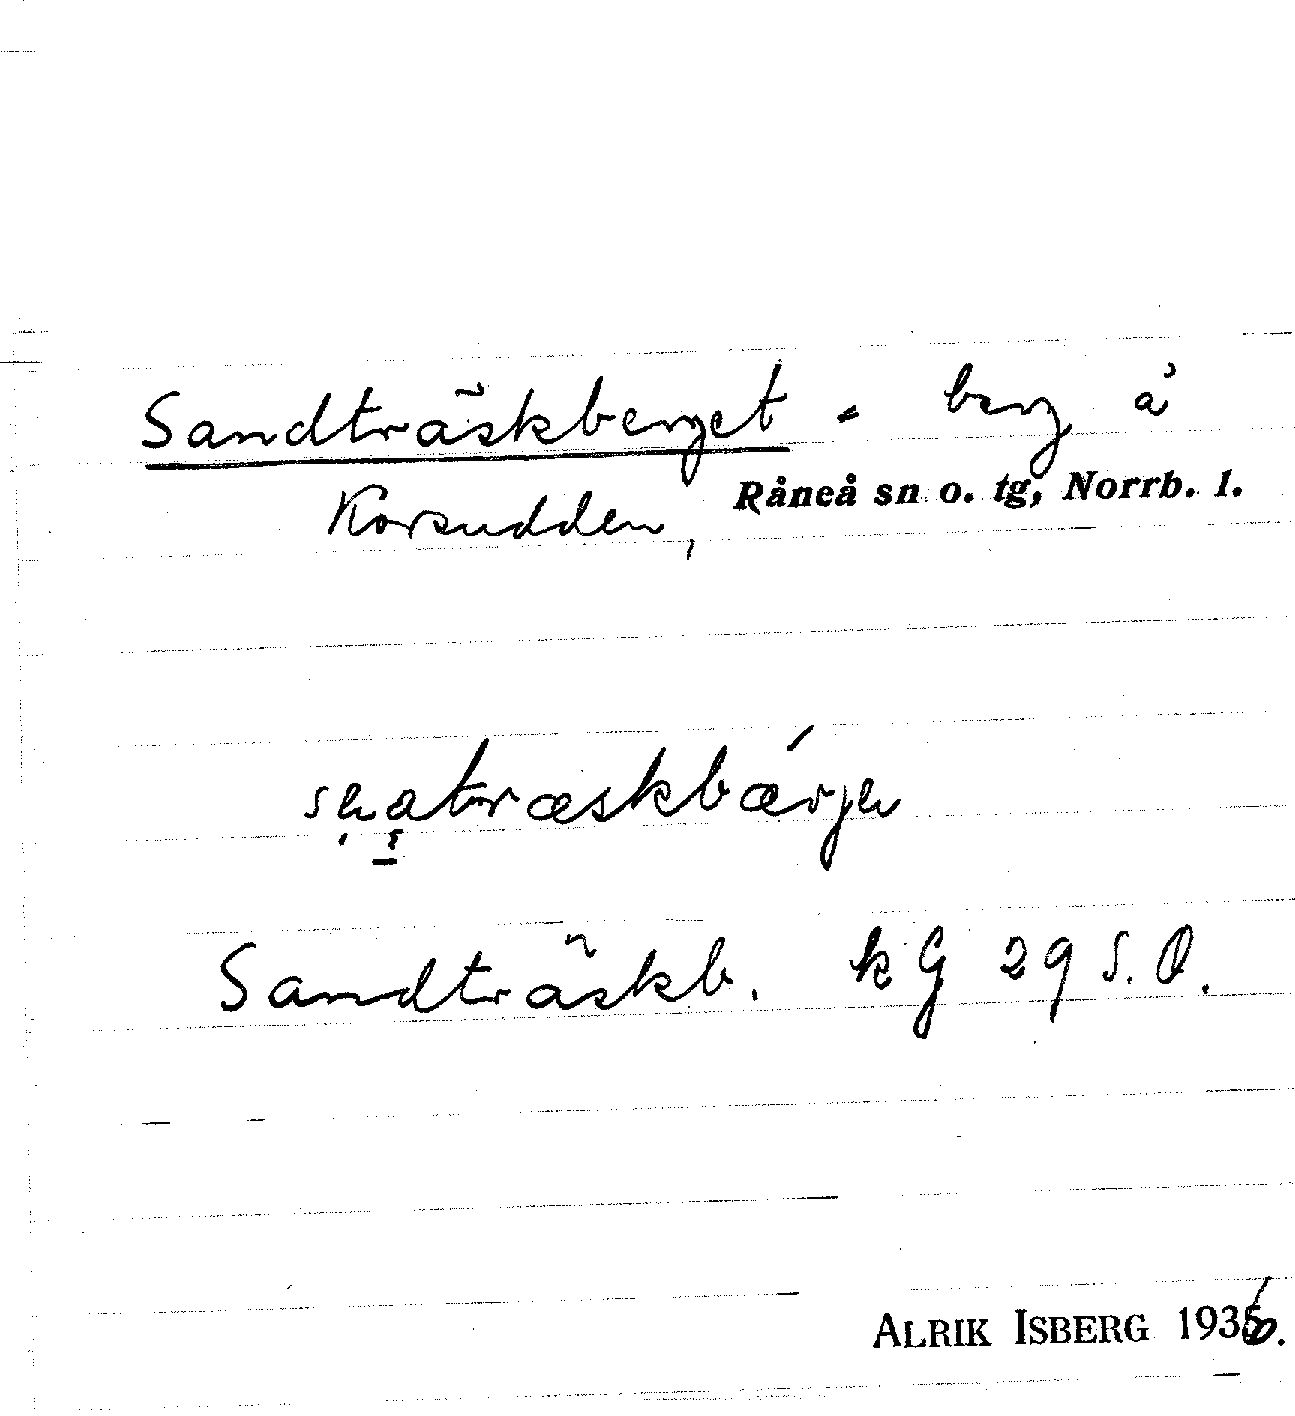 Sandträskberget - berg å
Korsudden, Råneå sn o. tg, Norrb. l.
Sandträskb. kG 29 S.O.
ALRIK ISBERG 1936.